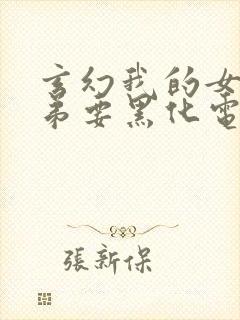 玄幻我的女
弟要黑化電
張新保